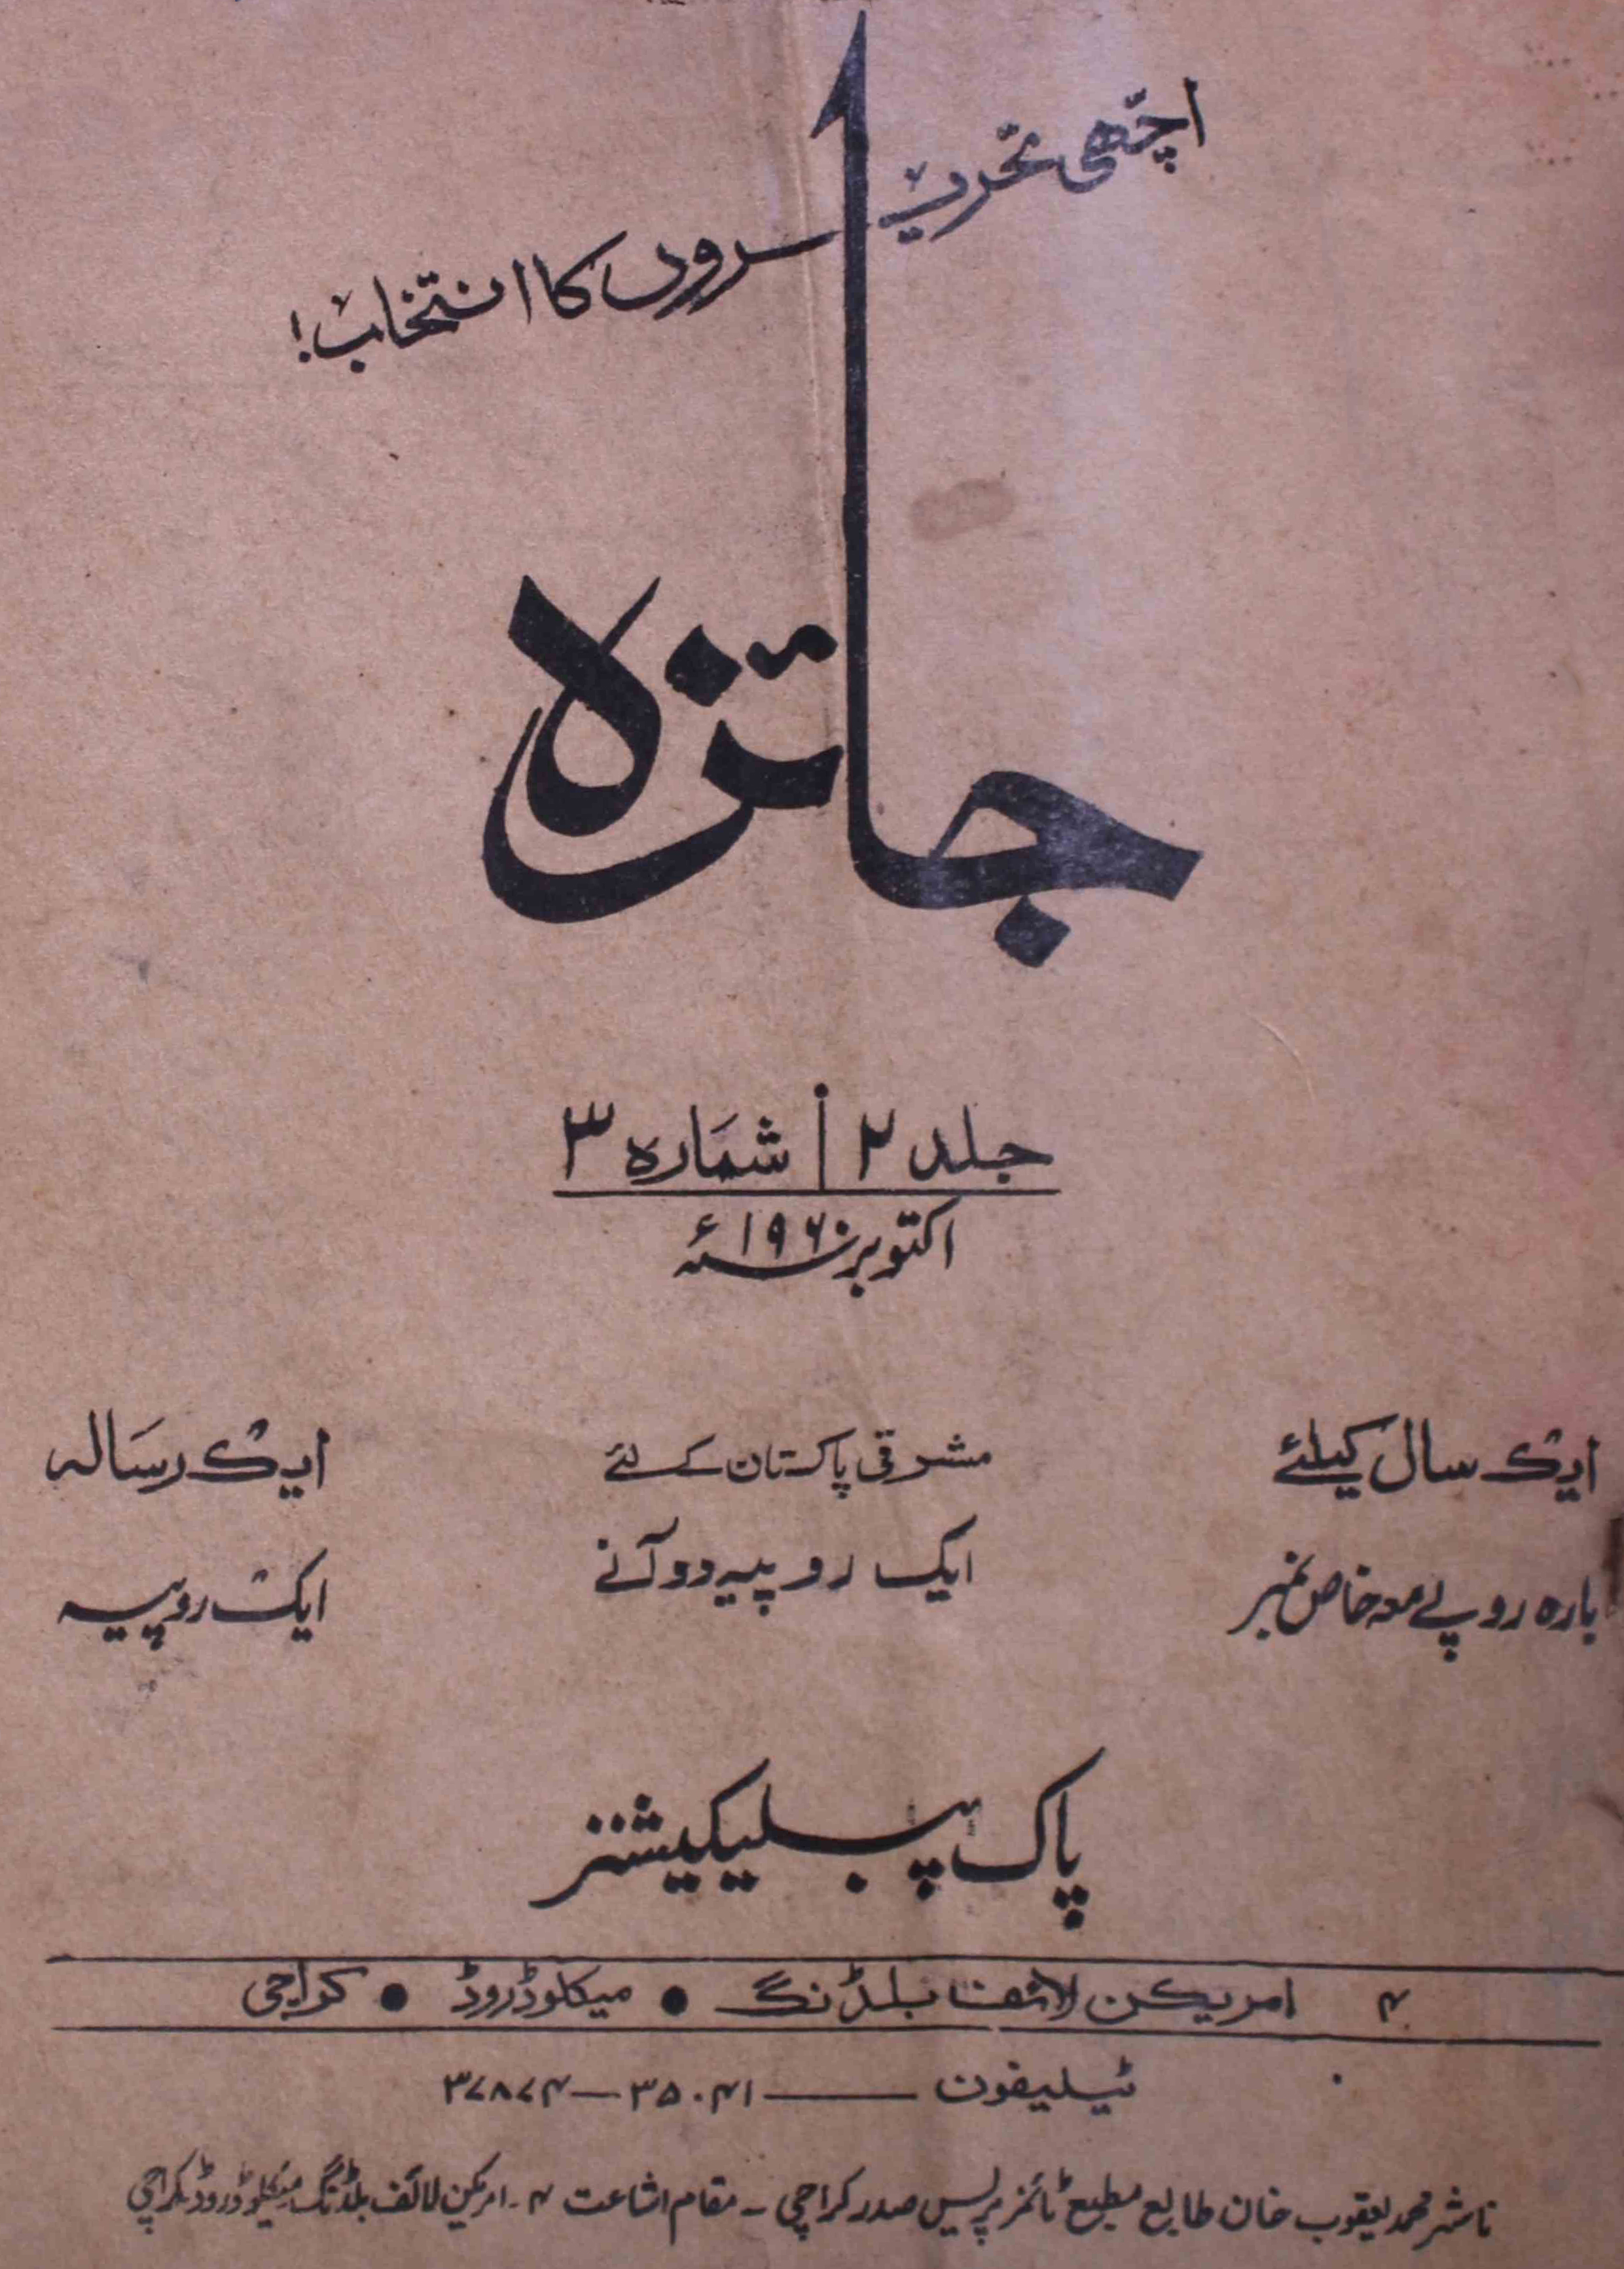 اچھی تحریروں کا انتخاب!
جائزہ
جلد ۲ | شمارہ ۳
اکتوبر ۱۹۶۰ء
ایک سال کیلئے
بارہ روپے معہ خاص نمبر
مشرقی پاکستان کے لئے
ایک روپیہ دو آنے
ایک رسالہ
ایک روپیہ
پاک پبلیکیشنز
۴ امریکن لائف بلڈنگ • میکلوڈ روڈ • کراچی
ٹیلیفون ——— ۳۵۰۴۱ — ۳۷۸۷۴
ناشر محمد یعقوب خان طابع مطبع ٹائمز پریس صدر کراچی - مقام اشاعت ۴ - امریکن لائف بلڈنگ میکلوڈ روڈ کراچی